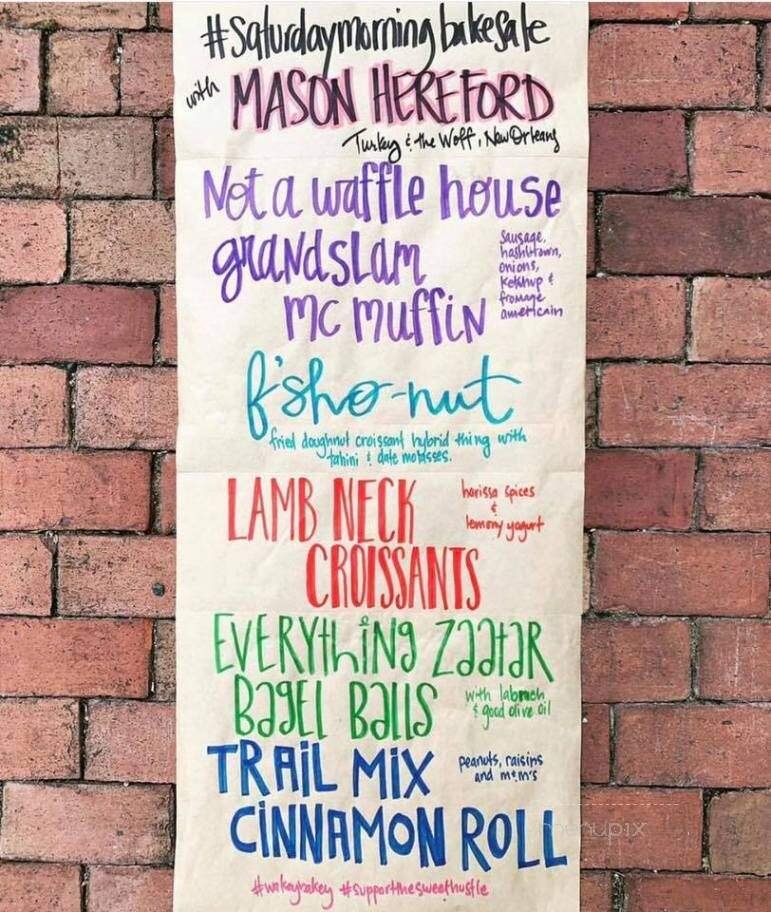 #Saturdaymorningbakesale
with MASON HEREFORD
Turkey & the Wolf, New Orleans
Not a waffle house
grandslam
mc muffin
Sausage,
hashbrown,
onions,
ketchup &
fromage
americain
f'sho-nut
fried doughnut croissant hybrid thing with
tahini & date molasses.
LAMB NECK
CROISSANTS
harissa spices
&
lemony yogurt
EVERYthiNg ZaatAR
BagEl BallS
with labneh
& good olive oil
TRAIL MIX
peanuts, raisins
and m&m's
CINNAMON ROLL
menupix
#wakeybakey #supportthesweethustle